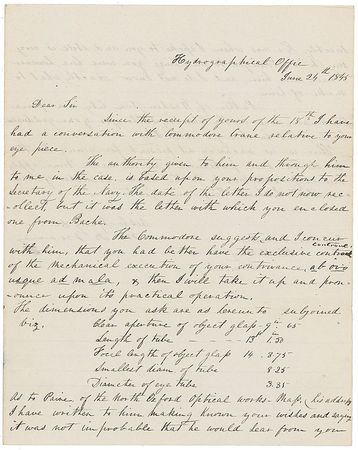 Hydrographical Office
June 24th 1845
Dear Sir
Since the receipt of yours of the 15th I have
had a conversation with Commodore Crane relative to your
eye piece.
The authority given to him and through him
to me in the case, is based upon your propositions to the
Secretary of the Navy. The date of the letter I do not now rec-
ollect, but it was the letter with which you enclosed
one from Bache.
The Commodore suggests, and I concur
with him, that you had better have the exclusive control
of the mechanical execution of your contrivance, ab ovo
usque ad mala, & then I will take it up and pron-
ounce upon its practical operation.
The dimensions you ask are as hereunto subjoined
viz. Clear aperture of object glass 9in 65
Length of tube 13ft 1.50
Focal length of object glass 14. 3.75
Smallest diam of tube 8.25
Diameter of eye tube 3.35
As to Paine, of the North Oxford Optical works, Mass, his address,
I have written to him, making known your wishes and saying
it was not improbable that he would hear from you